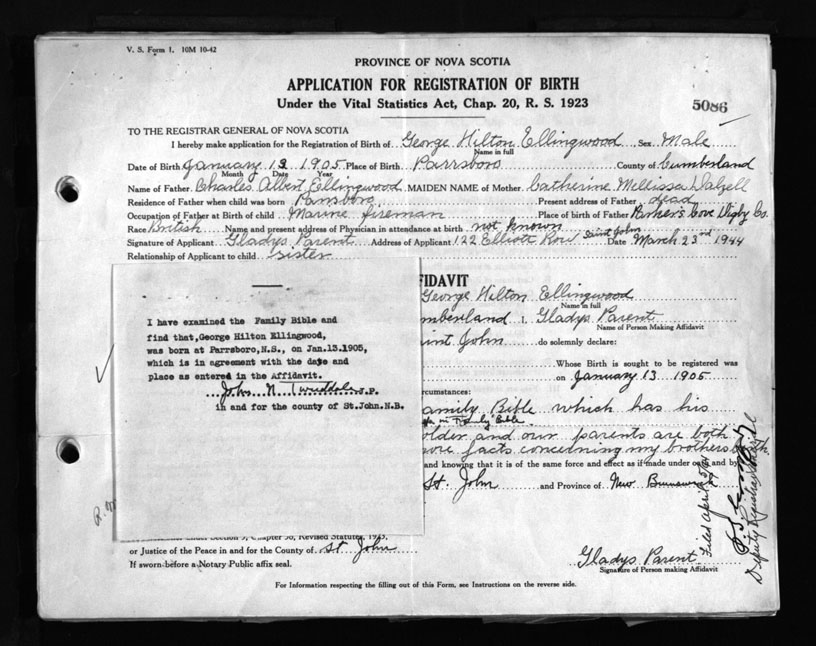 V. S. Form 1. 10M 10-42
PROVINCE OF NOVA SCOTIA
APPLICATION FOR REGISTRATION OF BIRTH
Under the Vital Statistics Act, Chap. 20, R. S. 1923
5086
TO THE REGISTRAR GENERAL OF NOVA SCOTIA
I hereby make application for the Registration of Birth of George Hilton Ellingwood Sex Male
Name in full
Date of Birth January 13 1905 Place of Birth Parrsboro County of Cumberland
Month Date Year
Name of Father Charles Albert Ellingwood MAIDEN NAME of Mother Catherine Mellissa Dalzell
Residence of Father when child was born Parrsboro Present address of Father dead
Occupation of Father at Birth of child Marine fireman Place of birth of Father Parker's Cove Digby Co.
Race British Name and present address of Physician in attendance at birth not known
Signature of Applicant Gladys Parent Address of Applicant 122 Elliott Row Saint John Date March 23rd 1944
Relationship of Applicant to child sister
FIDAVIT
George Hilton Ellingwood
Name in full
mberland I, Gladys Parent
Name of Person Making Affidavit
aint John do solemnly declare:
Whose Birth is sought to be registered was
on January 13 1905
cumstances:
amily Bible which has his
in Family Bible
older and our parents are both
ore facts concerning my brothers birth.
and knowing that it is of the same force and effect as if made under oath and by
St. John and Province of New Brunswick
I have examined the Family Bible and
find that,George Hilton Ellingwood,
was born at Parrsboro,N.S., on Jan.13.1905,
which is in agreement with the date and
place as entered in the Affidavit.
John N Tweeddale J.P.
in and for the county of St.John.N.B.
Chapter 36, Revised Statutes, 1923,
or Justice of the Peace in and for the County of St. John
If sworn before a Notary Public affix seal.
Gladys Parent
Signature of Person making Affidavit
Filed April 5/44
Deputy Registrar General
For Information respecting the filling out of this Form, see Instructions on the reverse side.